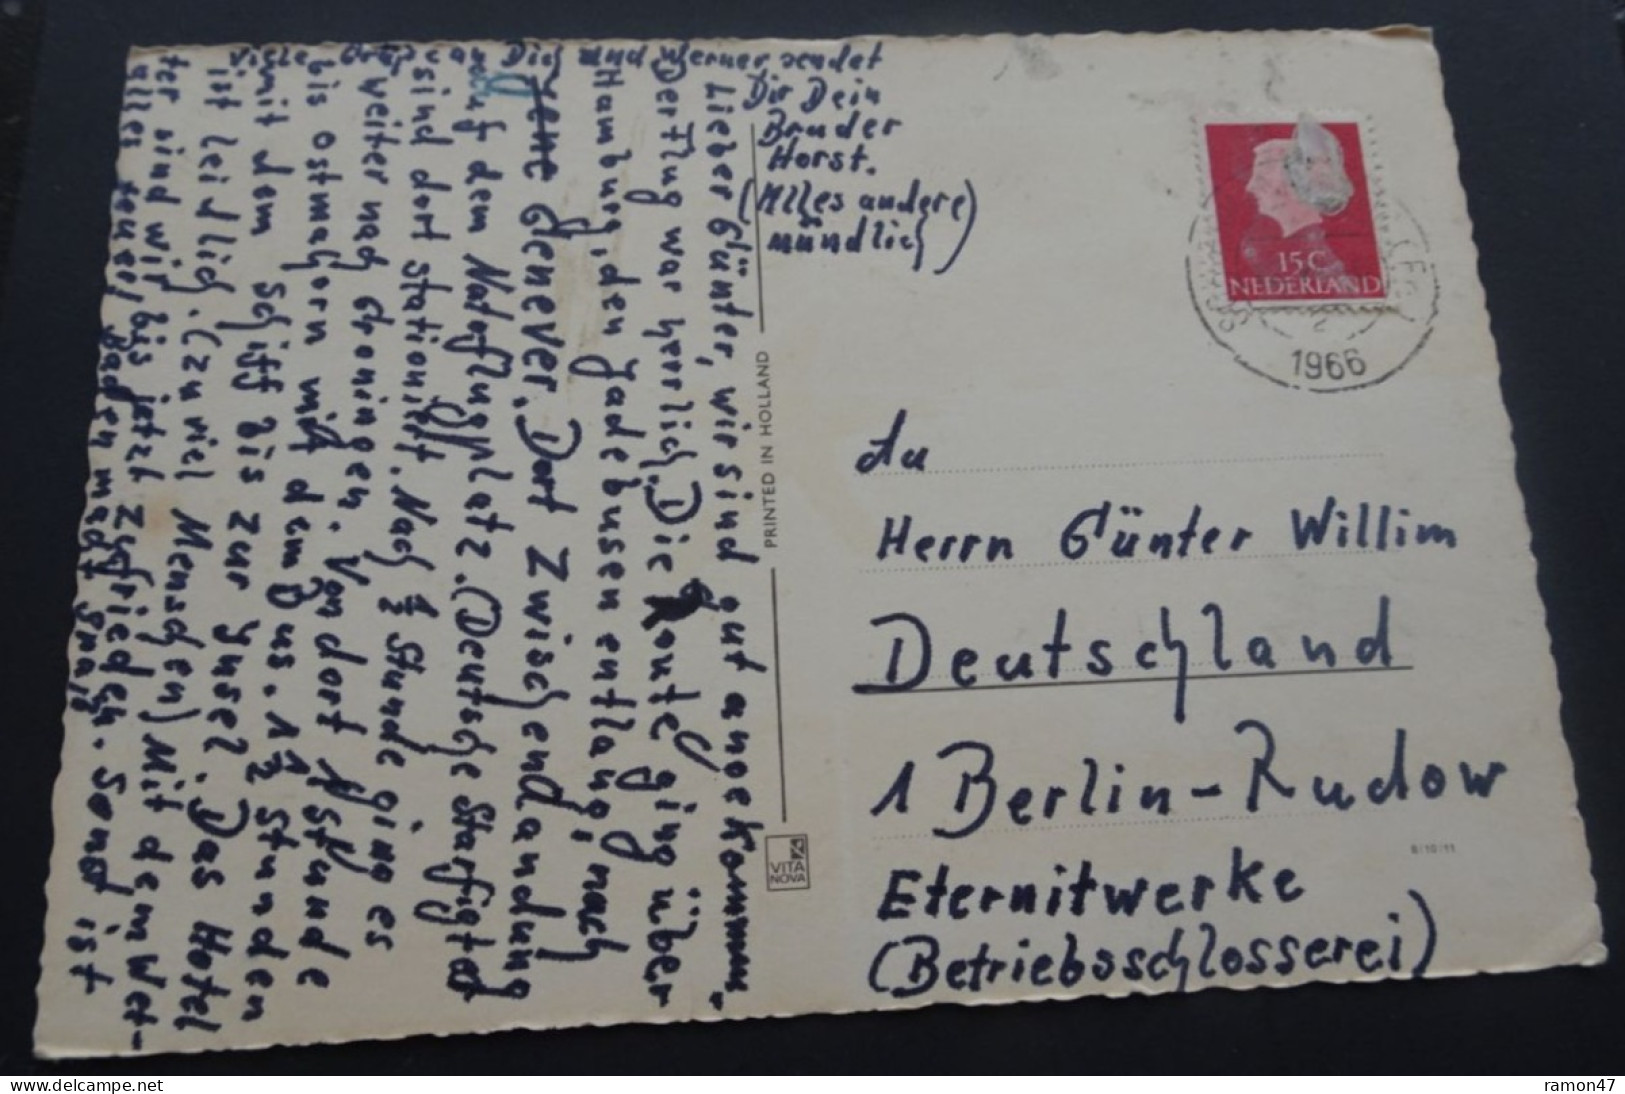 Lieber Günter, wir sind gut angekommen.
Der Flug war herrlich. Die Route ging über
Hamburg, den Jadebusen entlang, nach
Jene Genever. Dort Zwischenlandung
auf dem Natoflugplatz. (Deutsche Starfigter
sind dort stationiert. Nach ½ Stunde ging es
weiter nach Groningen. Von dort 1 Stunde
bis Ostmahorn mit dem Bus. 1½ Stunden
mit dem Schiff bis zur Insel. Das Hotel
ist leidlich. (zuviel Menschen) Mit dem Wet-
ter sind wir bis jetzt zufrieden. Sonst ist
alles teuer, baden macht Spaß
Viele Grüße an Dich und Werner sendet
Dir Dein
Bruder
Horst.
(Alles andere
mündlich)
PRINTED IN HOLLAND
VITA
NOVA
15C
NEDERLAND
1966
An
Herrn Günter Willim
Deutschland
1 Berlin-Rudow
Eternitwerke
(Betriebsschlosserei)
8/10/11
delcampe.net
ramon47